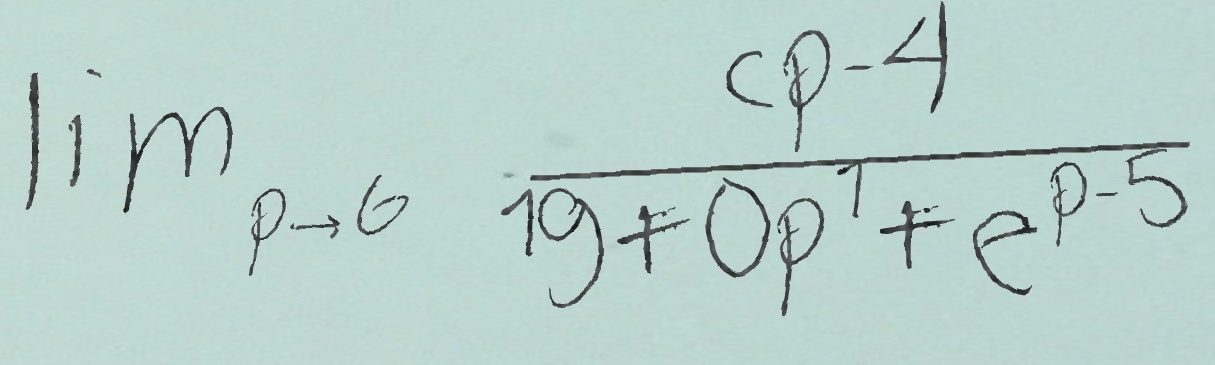 \lim_{p \to 6} \frac{cp-4}{19+0p^1+e^{p-5}}